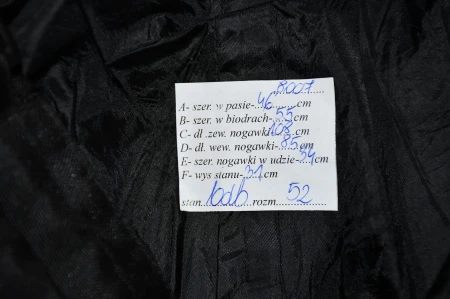 8007
A- szer. w pasie-46cm
B- szer. w biodrach-53cm
C- dł .zew. nogawki-108cm
D- dł. wew. nogawki-85cm
E- szer. nogawki w udzie-34cm
F- wys stanu-31cm
stan bdb rozm 52